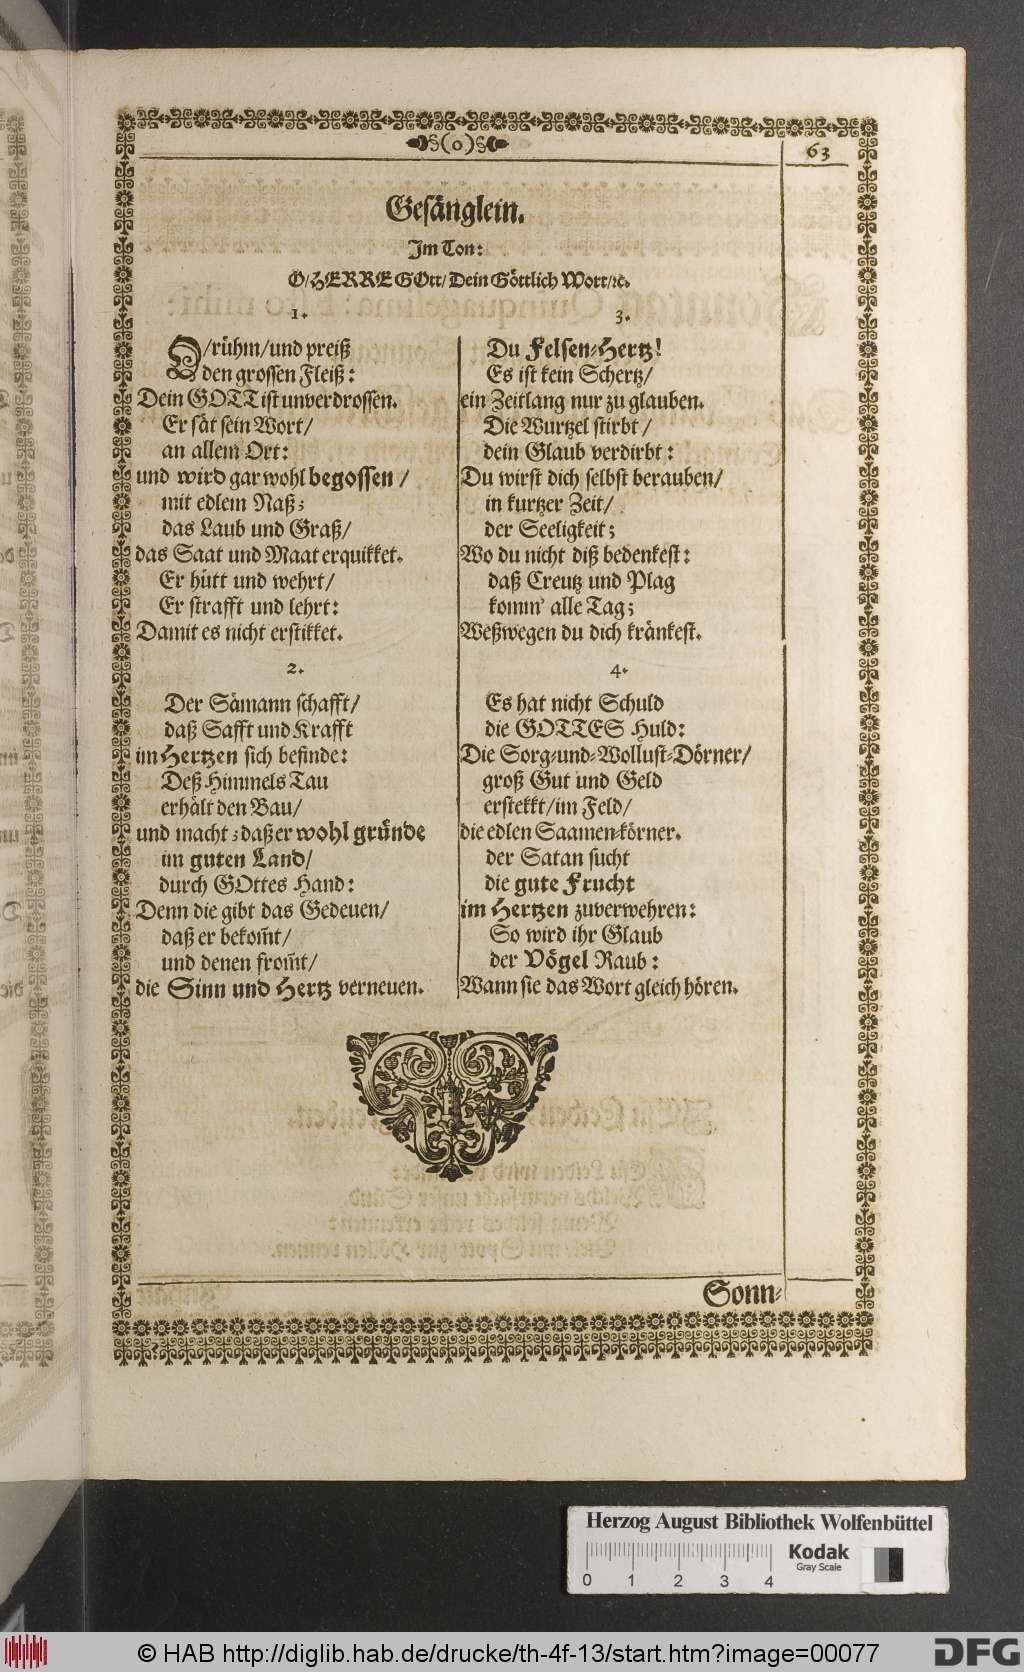 §(o)§
63
Gesänglein.
Im Ton:
O/HERRE GOtt/Dein Göttlich Wort/ꝛc.
1.
O/rühm/und preiß
den grossen Fleiß:
Dein GOTT ist unverdrossen.
Er sät sein Wort/
an allem Ort:
und wird gar wohl begossen /
mit edlem Naß;
das Laub und Graß/
das Saat und Maat erquikket.
Er hütt und wehrt/
Er strafft und lehrt:
Damit es nicht erstikket.
2.
Der Sämann schafft/
daß Safft und Krafft
im Hertzen sich befinde:
Deß Himmels Tau
erhält den Bau/
und macht; daß er wohl gründe
im guten Land/
durch GOttes Hand:
Denn die gibt das Gedeuen/
daß er bekom̃t/
und denen from̃t/
die Sinn und Hertz verneuen.
3.
Du Felsen-Hertz!
Es ist kein Schertz/
ein Zeitlang nur zu glauben.
Die Wurtzel stirbt /
dein Glaub verdirbt:
Du wirst dich selbst berauben/
in kurtzer Zeit/
der Seeligkeit;
Wo du nicht diß bedenkest:
daß Creutz und Plag
komm' alle Tag;
Weßwegen du dich kränkest.
4.
Es hat nicht Schuld
die GOTTES Huld:
Die Sorg-und-Wollust-Dörner/
groß Gut und Geld
erstekkt/im Feld/
die edlen Saamen-körner.
der Satan sucht
die gute Frucht
im Hertzen zuverwehren:
So wird ihr Glaub
der Vögel Raub:
Wann sie das Wort gleich hören.
Sonn-
Herzog August Bibliothek Wolfenbüttel
Kodak
Gray Scale
0 1 2 3 4
© HAB http://diglib.hab.de/drucke/th-4f-13/start.htm?image=00077
DFG